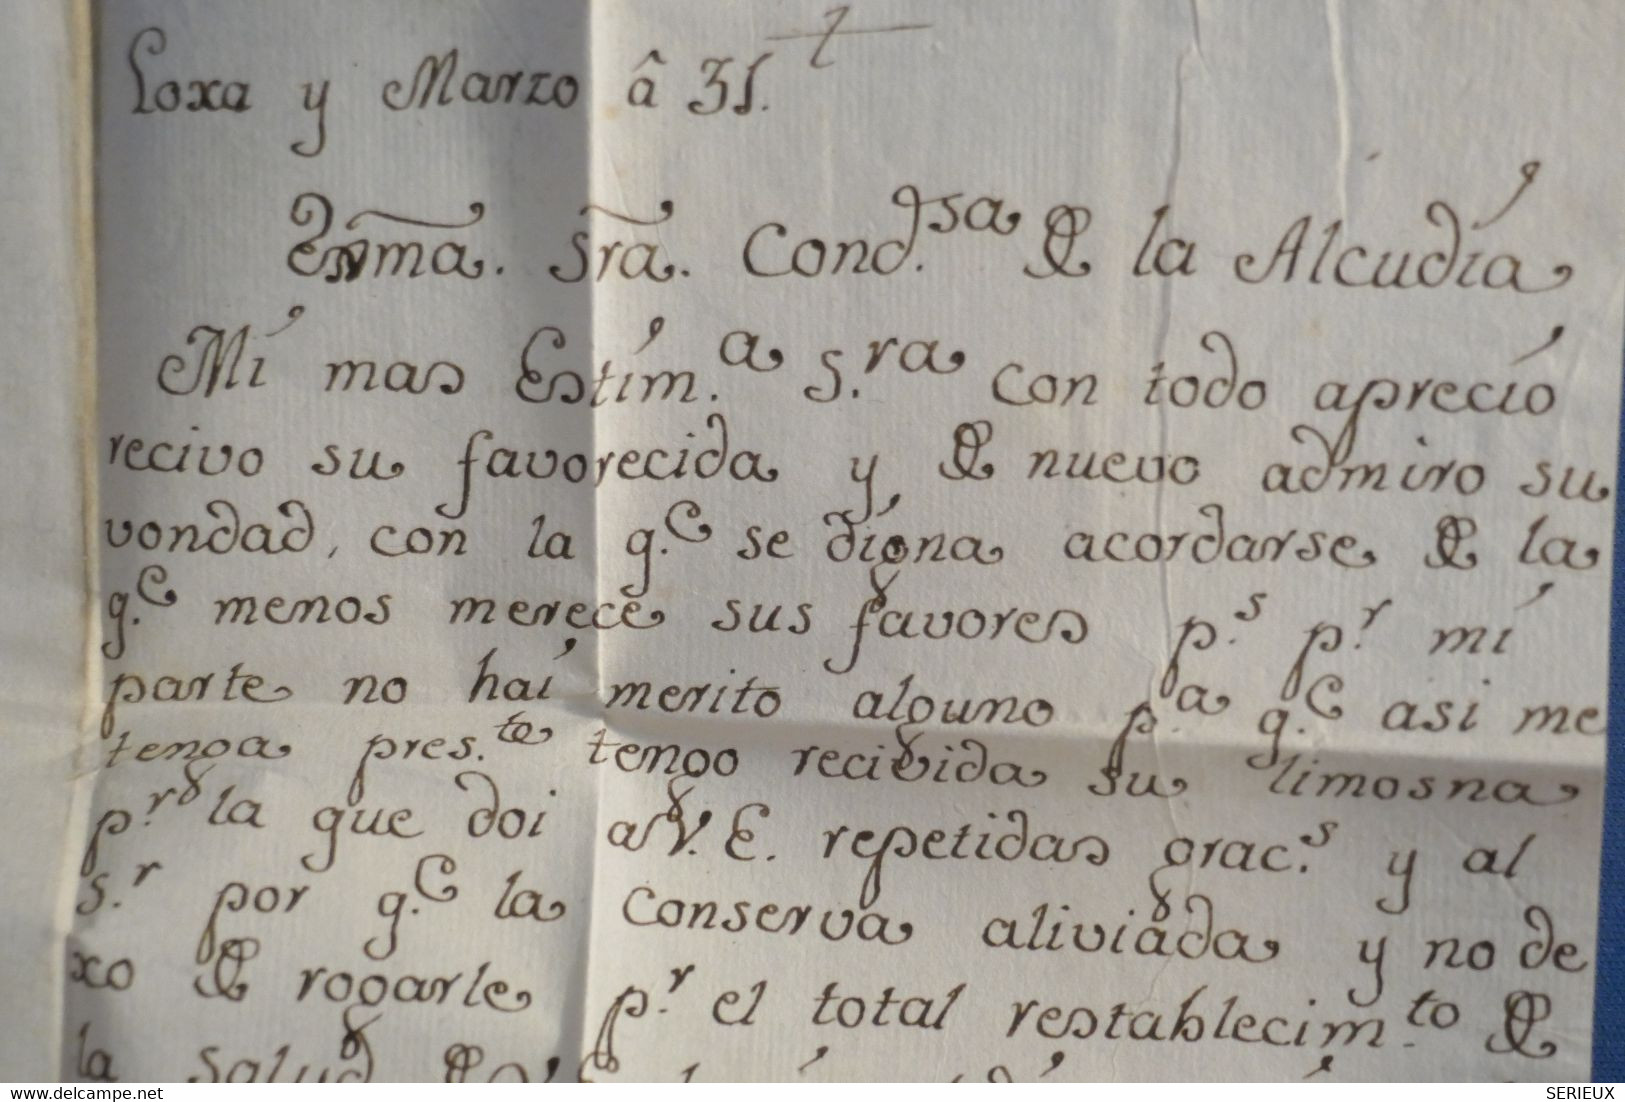 Loxa y Marzo â 31.
Exma. Sra. Cond.sa de la Alcudia
Mi mas Estim.a S.ra con todo aprecio
recivo su favorecida y de nuevo admiro su
vondad, con la q.e se digna acordarse de la
q.e menos merece sus favores p.s p.r mi
parte no hai merito alguno p.a q.e asi me
tenga pres.te tengo recivida su limosna
p.r la que doi a V. E. repetidas grac.s y al
S.r por q.e la conserva aliviada y no de
xo de rogarle p.r el total restablecim.to de
la salud de V. E.
https://www.delcampe.net
SERIEUX